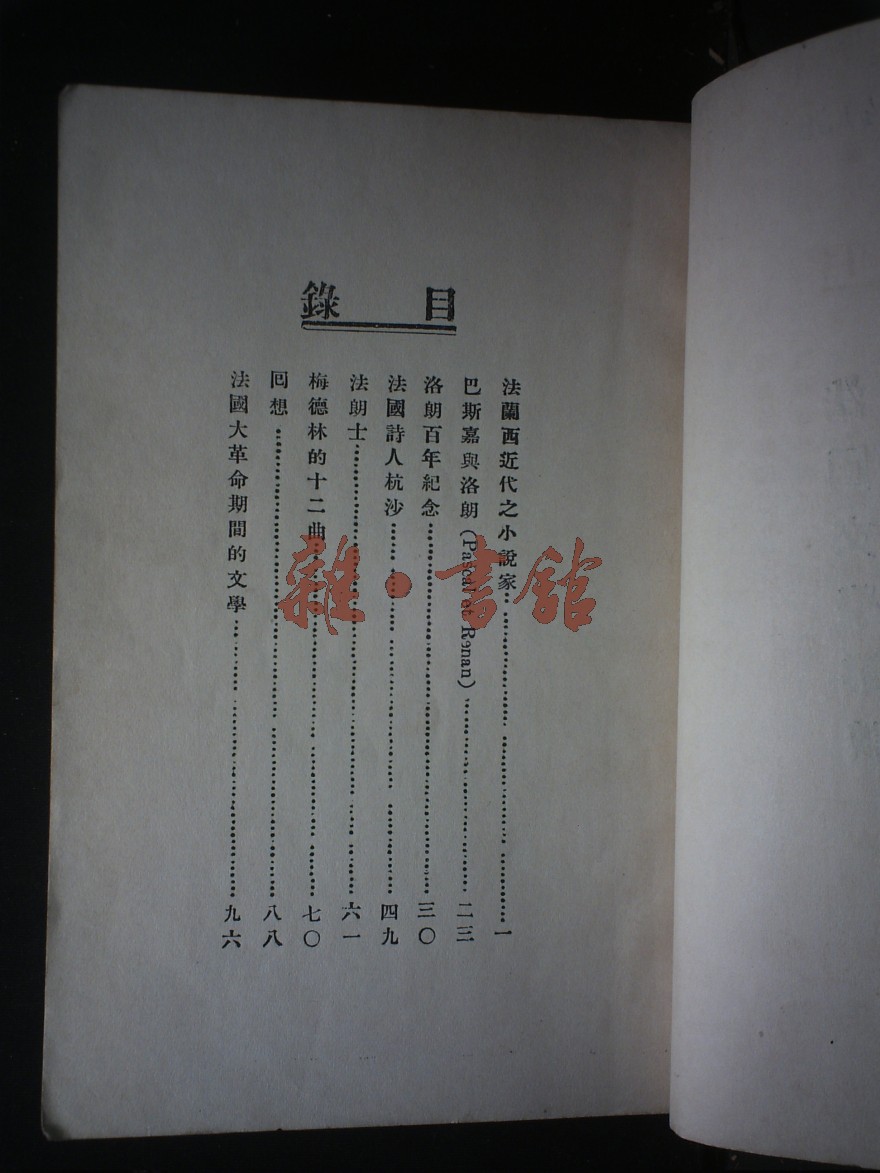 目錄
法蘭西近代之小說家 一
巴斯嘉與洛朗(Pascal et Renan) 二三
洛朗百年紀念 三〇
法國詩人杭沙 四九
法朗士 六一
梅德林的十二曲 七〇
囘想 八八
法國大革命期間的文學 九六
雜·書館